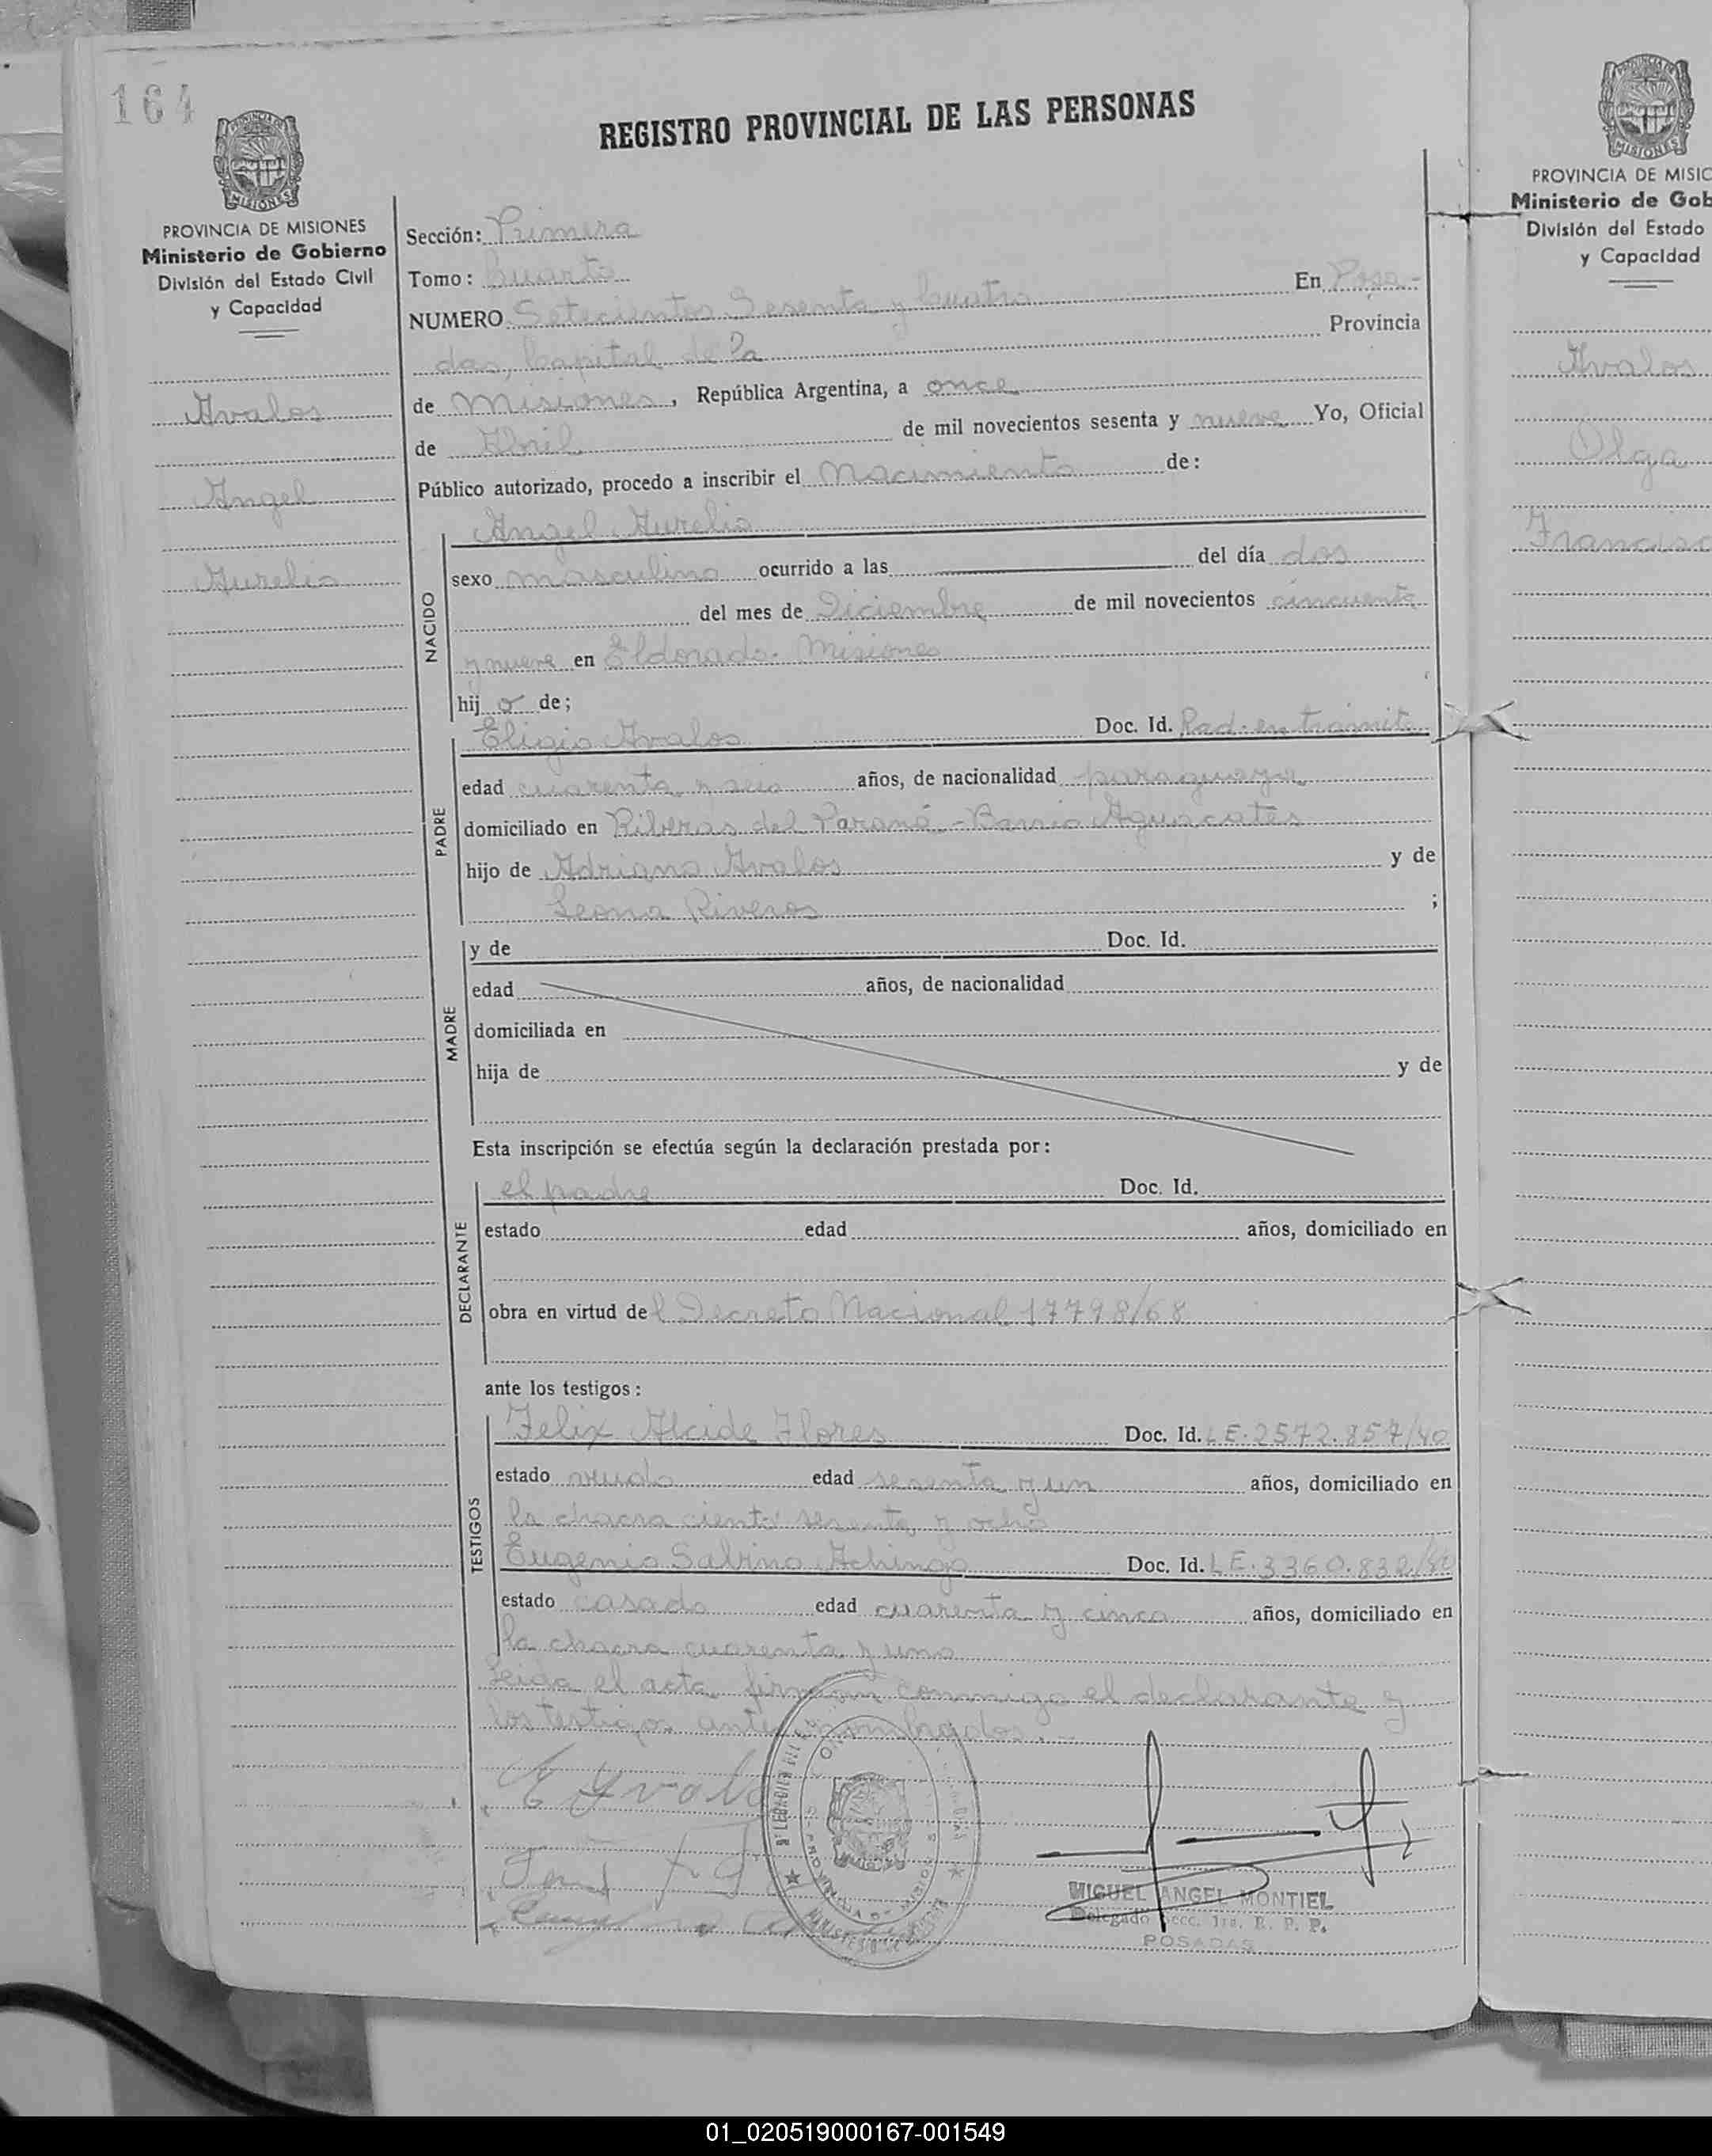 164
REGISTRO PROVINCIAL DE LAS PERSONAS
PROVINCIA DE MISIONES
Ministerio de Gobierno
División del Estado Civil
y Capacidad
Avalos
Angel
Aurelio
Sección: Primera
Tomo: Cuarto
NUMERO Setecientos Sesenta y Cuatro En Posa-
das, Capital de la Provincia
de Misiones, República Argentina, a once
de Abril de mil novecientos sesenta y nueve Yo, Oficial
Público autorizado, procedo a inscribir el Nacimiento de:
NACIDO
Angel Aurelio
sexo masculino ocurrido a las del día dos
del mes de Diciembre de mil novecientos cincuenta
y nueve en Eldorado. Misiones
hijo de;
PADRE
Eligio Avalos Doc. Id. Rad. en trámite
edad cuarenta y seis años, de nacionalidad paraguaya
domiciliado en Riberas del Paraná - Barrio Aguacates
hijo de Adriano Avalos y de
Leona Riveros ;
MADRE
y de Doc. Id.
edad años, de nacionalidad
domiciliada en
hija de y de
Esta inscripción se efectúa según la declaración prestada por:
DECLARANTE
el padre Doc. Id.
estado edad años, domiciliado en
obra en virtud del Decreto Nacional 17798/68
ante los testigos:
TESTIGOS
Felix Alcide Flores Doc. Id. L E. 2572.857/40
estado viudo edad sesenta y un años, domiciliado en
la chacra ciento sesenta y ocho
Eugenio Sabino Doc. Id. L E. 3360.832/
estado casado edad cuarenta y cinco años, domiciliado en
la chacra cuarenta y uno
Leida el acta, firman conmigo el declarante y
los testigos antes nombrados.-
E Avalo
MIGUEL ANGEL MONTIEL
Delegado Secc. 1ra. R. P. P.
POSADAS
PROVINCIA DE MISIC
Ministerio de Gob
División del Estado
y Capacidad
Avalos
Olga
Francisc
01_020519000167-001549